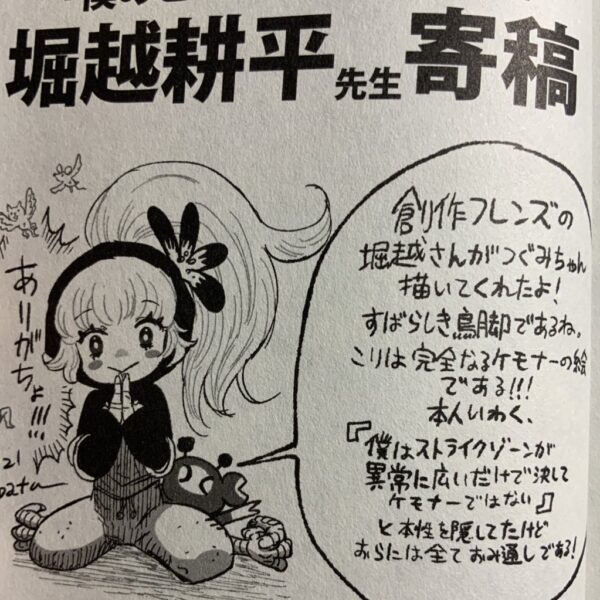 堀越耕平先生寄稿
創作フレンズの
堀越さんがつぐみちゃん
描いてくれたよ!
すばらしき鳥脚であるね。
こりは完全なるケモナーの絵
である!!!
本人いわく、
『僕はストライクゾーンが
異常に広いだけで決して
ケモナーではない』
と本性を隠してたけど
おらには全てお見通しである!
ありがちょ!!!!
21